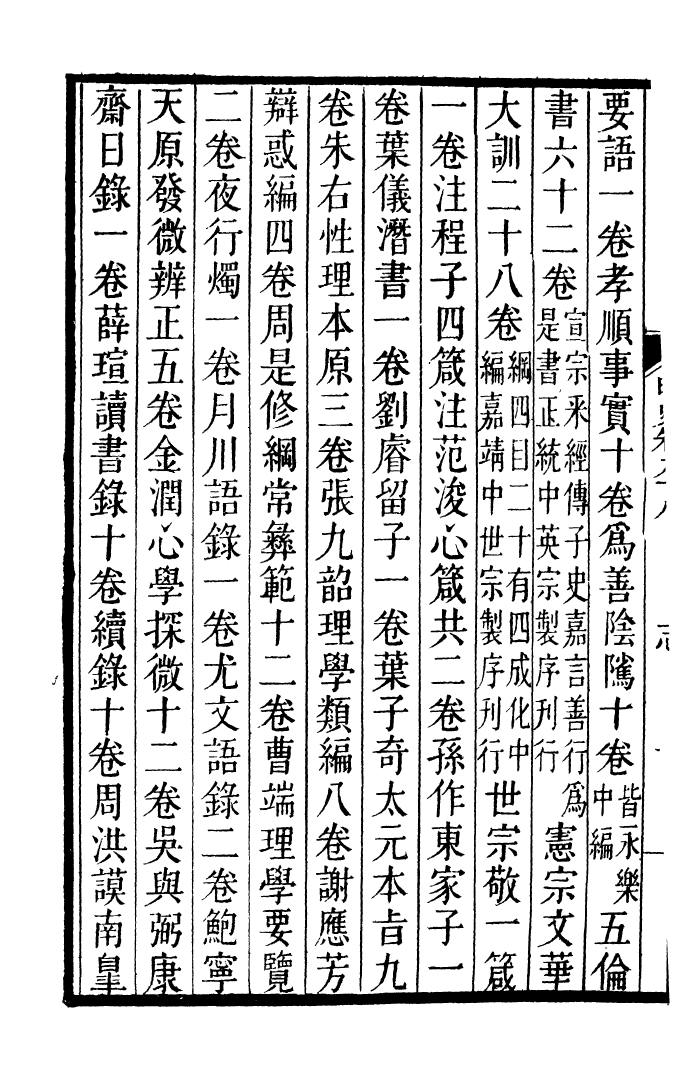 要語一卷孝順事實十卷爲善陰隲十卷皆永樂中編五倫
書六十二卷宣宗采經傳子史嘉言善行爲是書正統中英宗製序刊行憲宗文華
大訓二十八卷綱四目二十有四成化中編嘉靖中世宗製序刊行世宗敬一箴
一卷注程子四箴注范浚心箴共二卷孫作東家子一
卷葉儀潛書一卷劉睿留子一卷葉子奇太元本旨九
卷朱右性理本原三卷張九韶理學類編八卷謝應芳
辯惑編四卷周是修綱常彝範十二卷曹端理學要覽
二卷夜行燭一卷月川語錄一卷尤文語錄二卷鮑寧
天原發微辨正五卷金潤心學探微十二卷吳與弼康
齋日錄一卷薛瑄讀書錄十卷續錄十卷周洪謨南皐